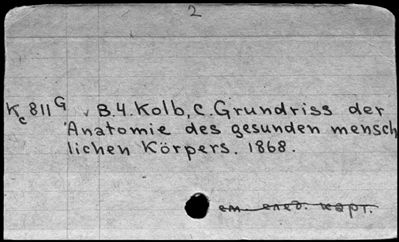 2
Kc 811G v B.4. Kolb, C. Grundriss der
Anatomie des gesunden mensch
lichen Körpers. 1868.
см. след. карт.